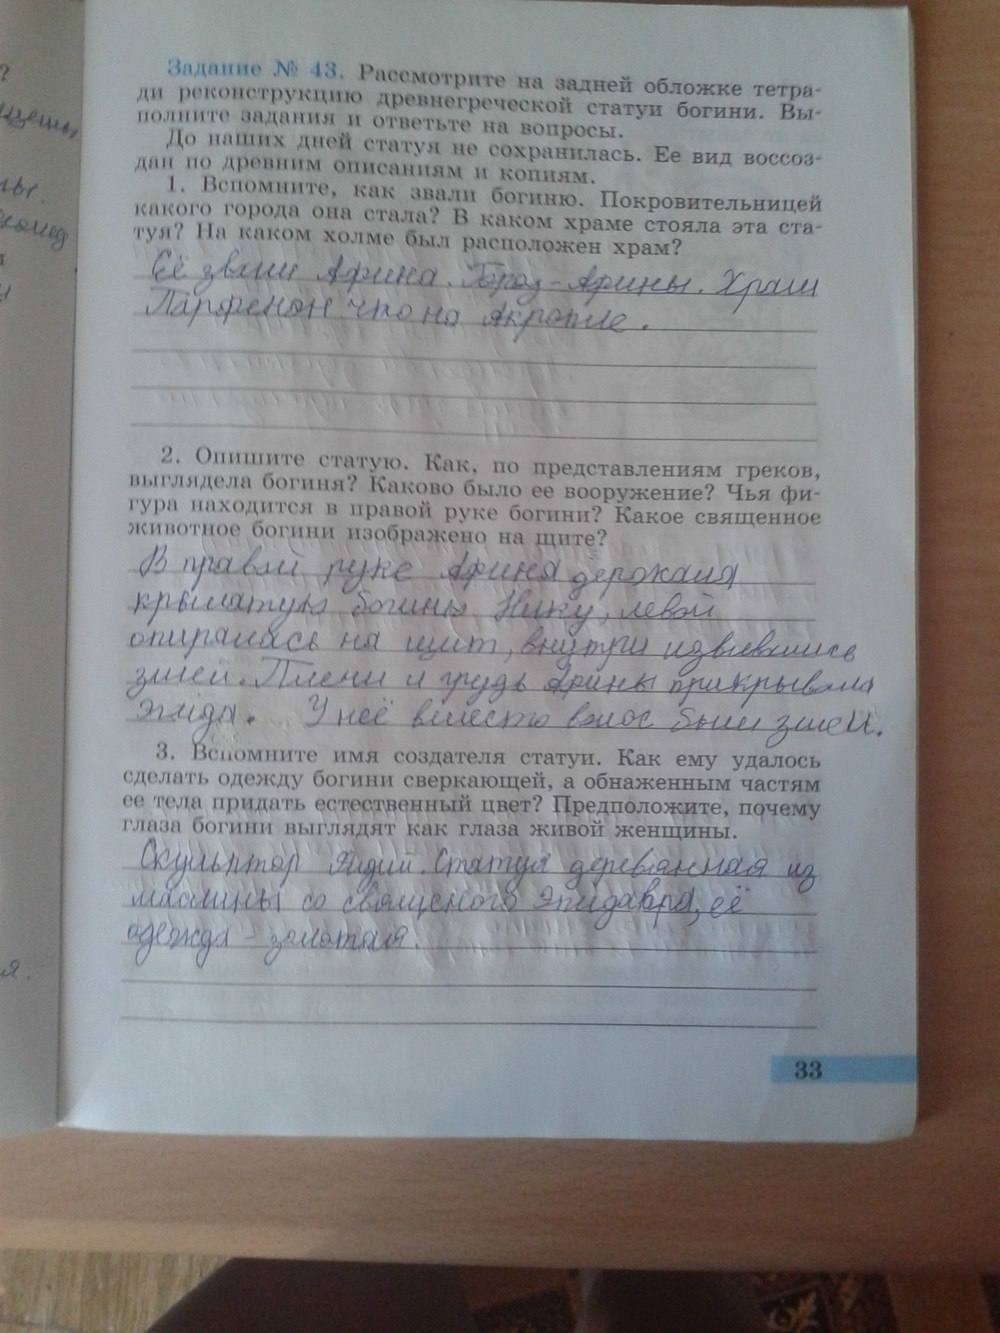 ?
Задание № 43. Рассмотрите на задней обложке тетра-
ди реконструкцию древнегреческой статуи богини. Вы-
полните задания и ответьте на вопросы.
До наших дней статуя не сохранилась. Ее вид воссоз-
дан по древним описаниям и копиям.
1. Вспомните, как звали богиню. Покровительницей
какого города она стала? В каком храме стояла эта ста-
туя? На каком холме был расположен храм?
Её звали Афина. Город - Афины. Храм
Парфенон что на
2. Опишите статую. Как, по представлениям греков,
выглядела богиня? Каково было ее вооружение? Чья фи-
гура находится в правой руке богини? Какое священное
животное богини изображено на щите?
В правой руке Афина держала
крылатую богины Нику, левой
опиралась на щит, внутри извившись
змей. Плечи и грудь Афины прикрывала
Эгида. У неё вместо волос были змеи.
3. Вспомните имя создателя статуи. Как ему удалось
сделать одежду богини сверкающей, а обнаженным частям
ее тела придать естественный цвет? Предположите, почему
глаза богини выглядят как глаза живой женщины.
Скульптор Фидий. Статуя деревянная из
маслины со священого Эпидавра, её
одежда - золотая.
33